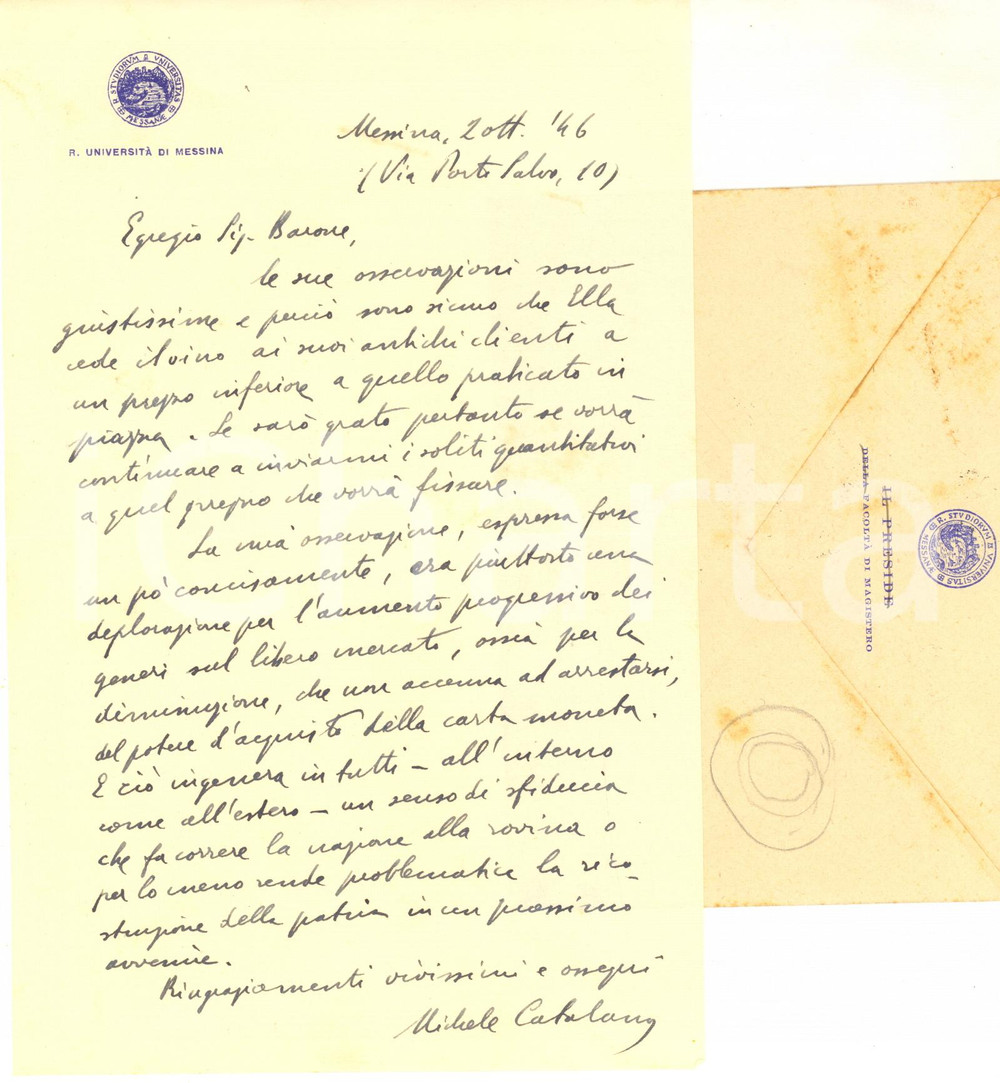 R. STVDIORVM VNIVERSITAS
MESSANAE
R. UNIVERSITÀ DI MESSINA
Messina, 2 ott. '46
(Via Porto Salvo, 10)
Egregio Sig. Barone,
le sue osservazioni sono
giustissime e perciò sono sicuro che Ella
cede il vino ai suoi antichi clienti a
un prezzo inferiore a quello praticato in
piazza. Le sarò grato pertanto se vorrà
continuare a inviarmi i soliti quantitativi
a quel prezzo che vorrà fissare.
La mia osservazione, espressa forse
un pò concisamente, era piuttosto una
deplorazione per l'aumento progressivo dei
generi sul libero mercato, ossia per la
diminuzione, che non accenna ad arrestarsi,
del potere d'acquisto della carta moneta.
E ciò ingenera in tutti - all'interno
come all'estero - un senso di sfiducia
che fa correre la nazione alla rovina o
per lo meno rende problematica la rico-
struzione della patria in un prossimo
avvenire.
Ringraziamenti vivissimi e ossequi
Michele Catalano
IL PRESIDE
DELLA FACOLTÀ DI MAGISTERO
R. STVDIORVM VNIVERSITAS
MESSANAE
Charta